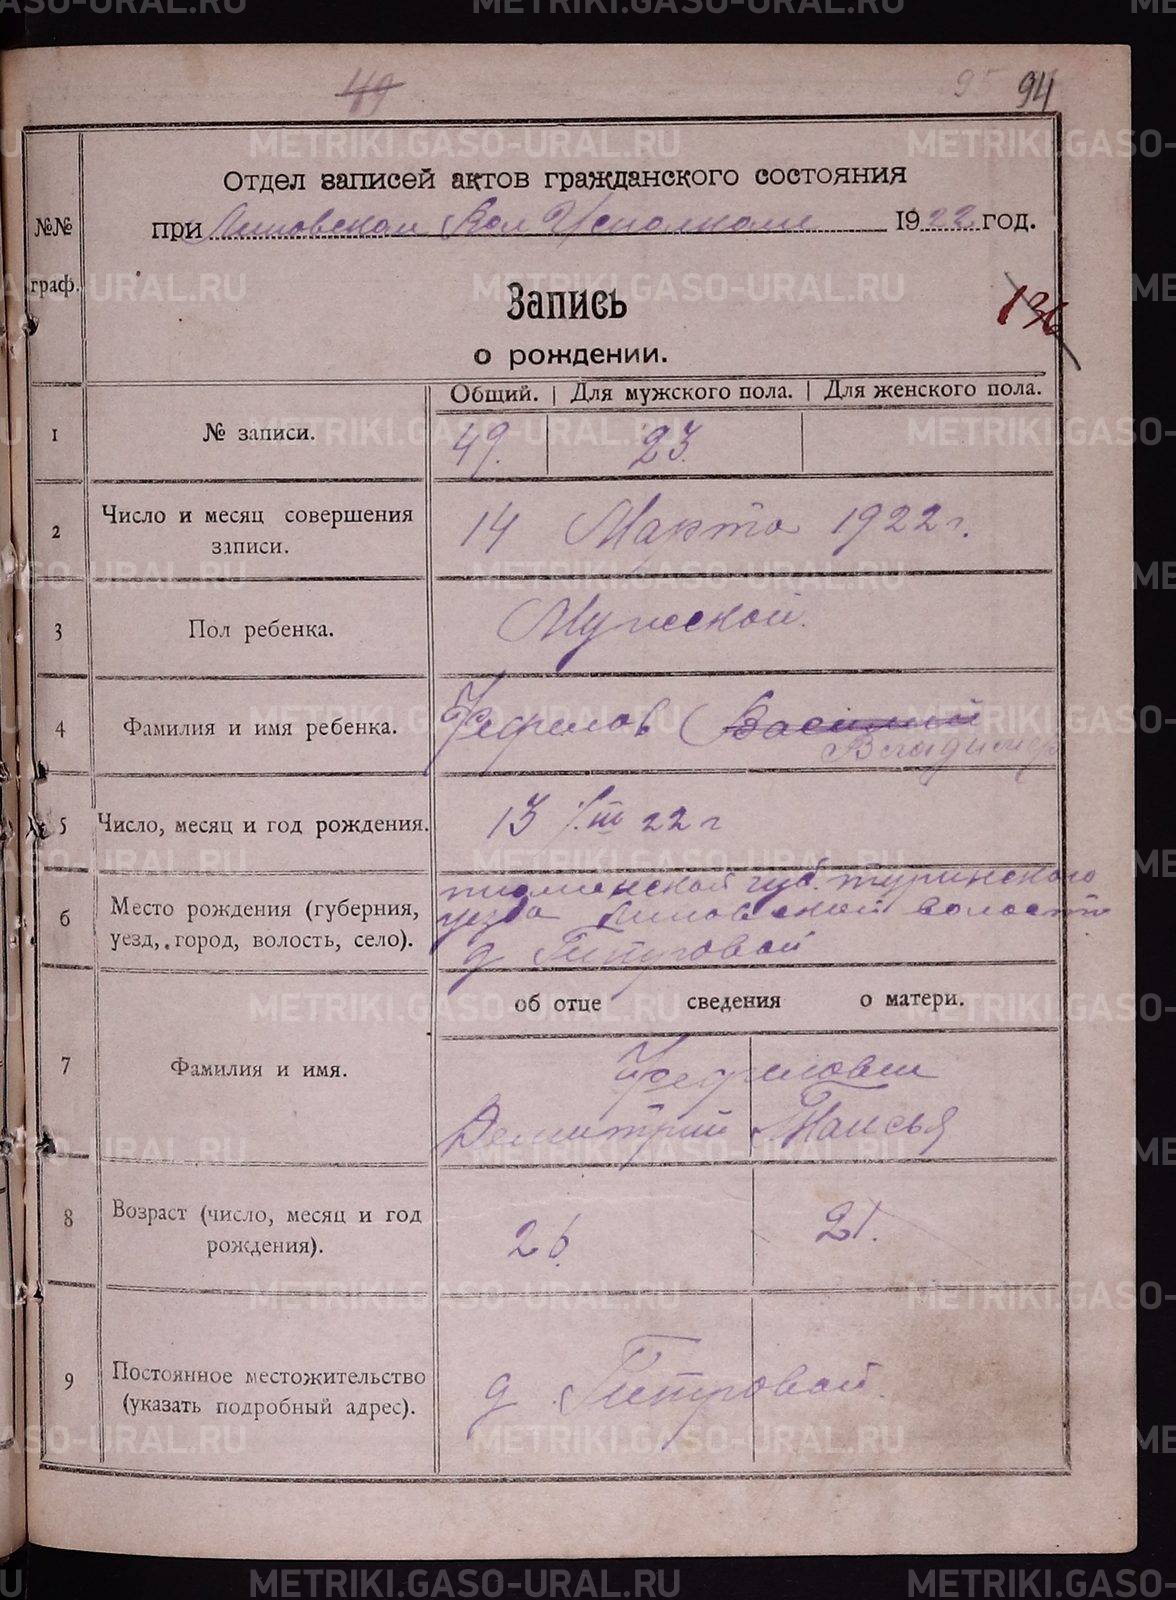 METRIKI.GASO-URAL.RU
49
95 94
METRIKI.GASO-URAL.RU METRIKI.GASO-URAL.RU
№№
граф.
Отдел записей актов гражданского состояния
при Липовском Вол Исполкоме 1922 год.
Запись
о рождении.
136
Общий. | Для мужского пола. | Для женского пола.
1 № записи. 49. 23.
2 Число и месяц совершения записи. 14 Марта 1922 г.
3 Пол ребенка. Мужской.
4 Фамилия и имя ребенка. Фефелов Василий
Владимир
5 Число, месяц и год рождения. 13 III 22 г
6 Место рождения (губерния,
уезд, город, волость, село).
тюменской губ. туринского
уезда Липовской волости
д
об отце сведения о матери.
7 Фамилия и имя. Фефеловы
Демитрий Таисья
8 Возраст (число, месяц и год
рождения).
26. 21.
9 Постоянное местожительство
(указать подробный адрес).
д
METRIKI.GASO-URAL.RU METRIKI.GASO-URAL.RU